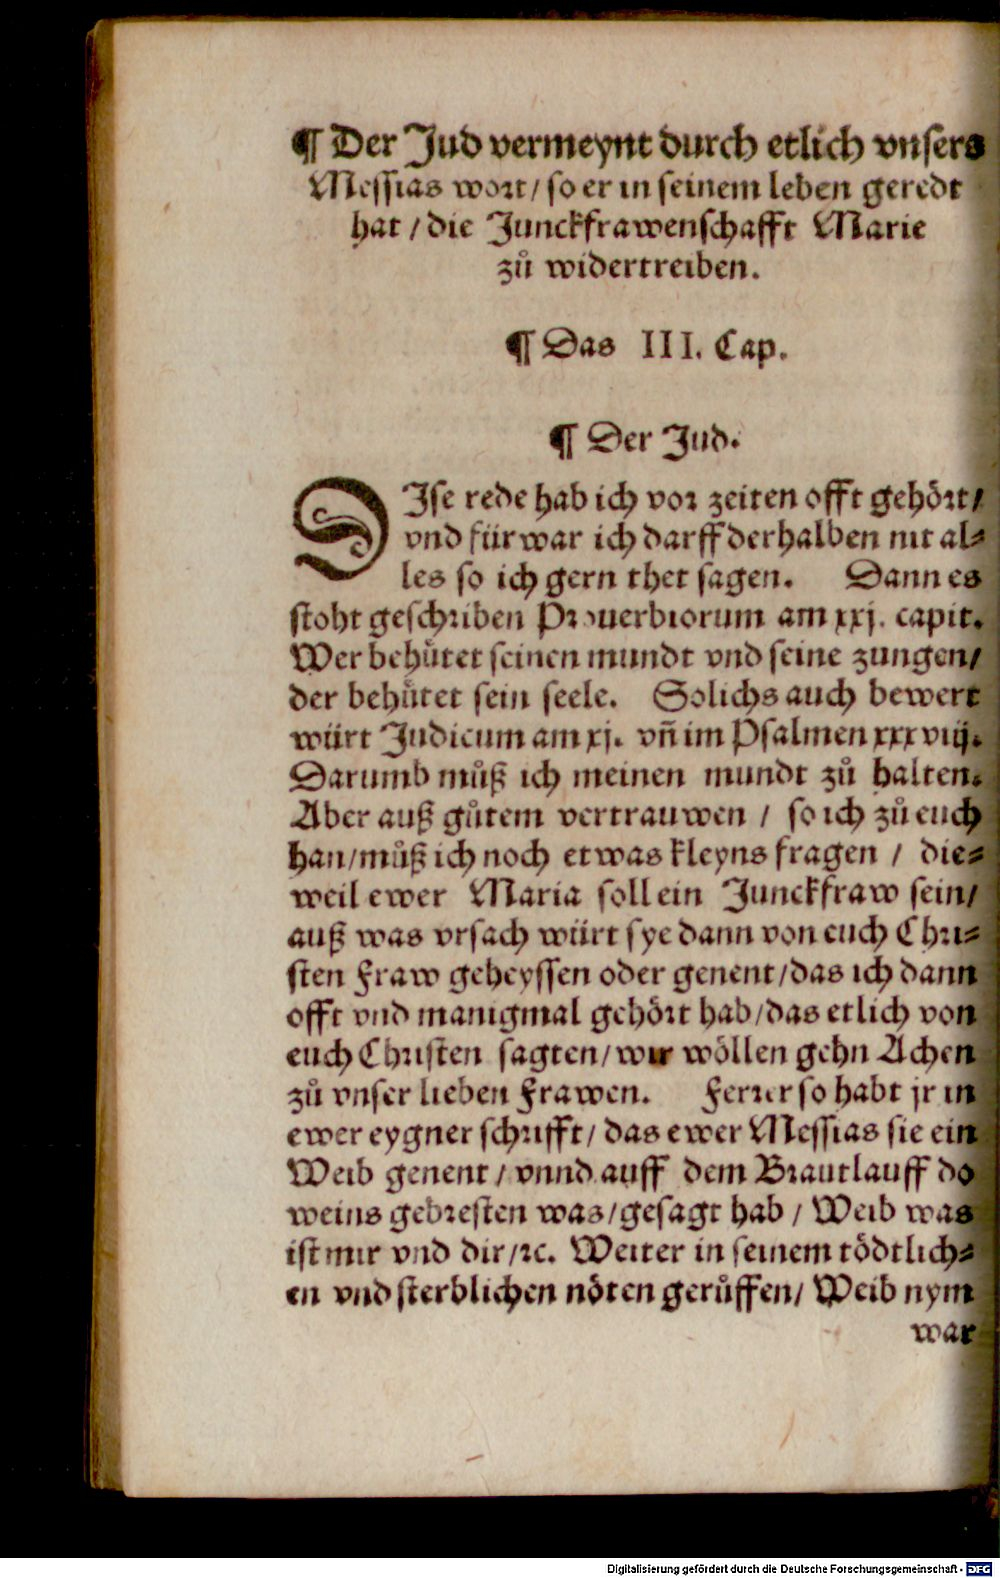 ¶ Der Jud vermeynt durch etlich vnsers
Messias wort / so er in seinem leben geredt
hat / die Junckfrawenschafft Marie
zů widertreiben.
¶ Das III. Cap.
¶ Der Jud.
DIse rede hab ich vor zeiten offt gehört /
vnd fürwar ich darff derhalben nit al⸗
les so ich gern thet sagen. Dann es
stoht geschriben Prouerbiorum am xxj. capit.
Wer behůtet seinen mundt vnd seine zungen /
der behůtet sein seele. Solichs auch bewert
würt Judicum am xj. vñ im Psalmen xxxviij.
Darumb můß ich meinen mundt zů halten.
Aber auß gůtem vertrauwen / so ich zů euch
han / můß ich noch etwas kleyns fragen / die⸗
weil ewer Maria soll ein Junckfraw sein /
auß was vrsach würt sye dann von euch Chri⸗
sten Fraw geheyssen oder genent / das ich dann
offt vnd manigmal gehört hab / das etlich von
euch Christen sagten / wir wöllen gehn Achen
zů vnser lieben Frawen. Ferrer so habt jr in
ewer eygner schrifft / das ewer Messias sie ein
Weib genent / vnnd auff dem Brautlauff do
weins gebresten was / gesagt hab / Weib was
ist mir vnd dir / ꝛc. Weiter in seinem tödtlich⸗
en vnd sterblichen nöten gerůffen / Weib nym
war
Digitalisierung gefördert durch die Deutsche Forschungsgemeinschaft - DFG